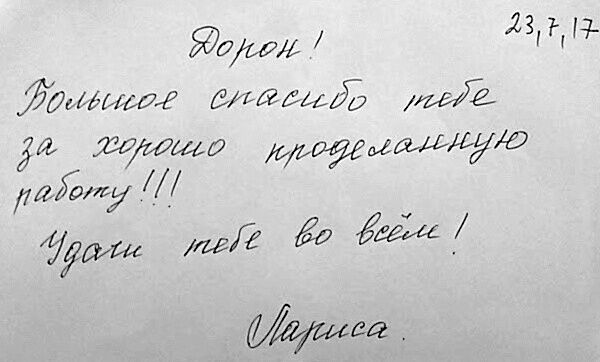 23,7,17
Дорон!
Большое спасибо тебе
за хорошо проделанную
работу!!!
Удачи тебе во всём!
Лариса.